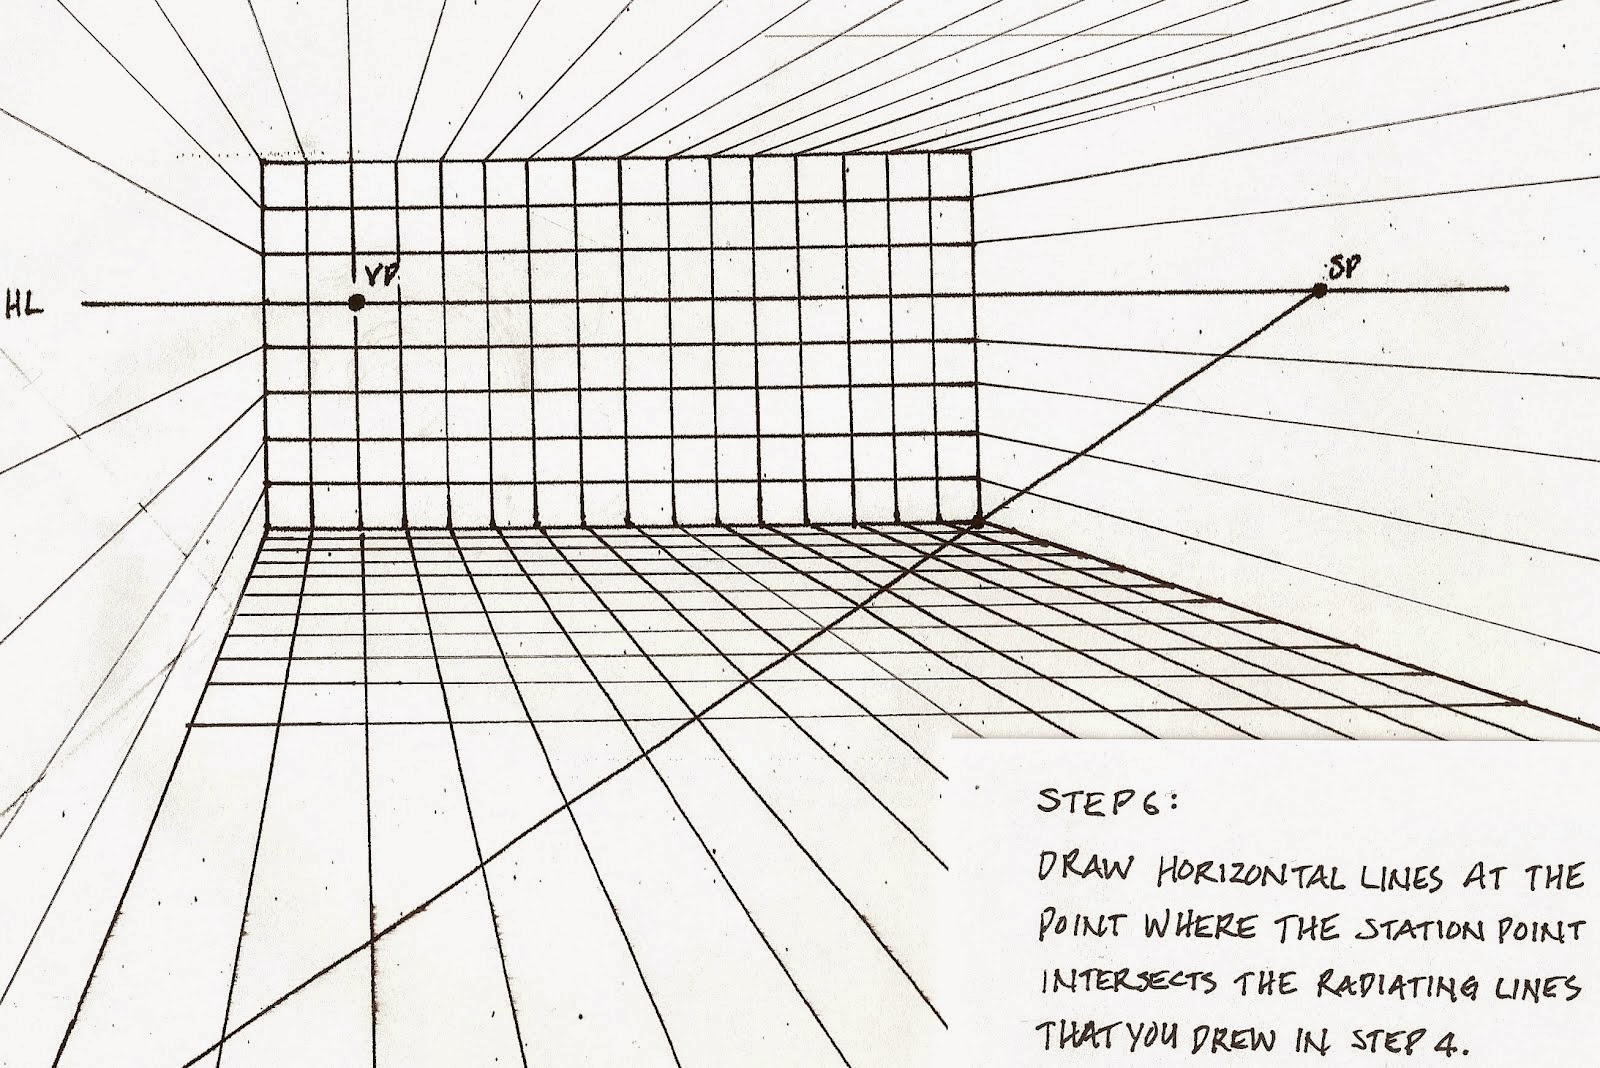 VP
SP
HL
STEP 6:
DRAW HORIZONTAL LINES AT THE
POINT WHERE THE STATION POINT
INTERSECTS THE RADIATING LINES
THAT YOU DREW IN STEP 4.